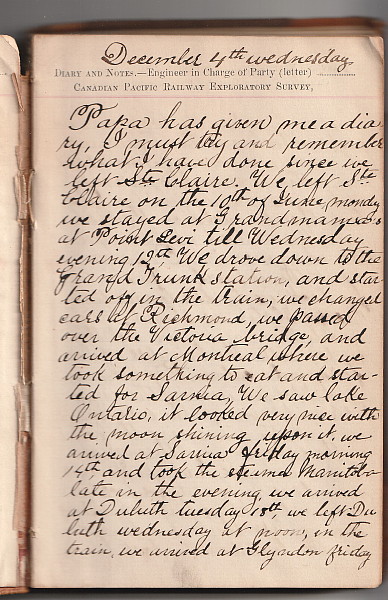 December 4th wednesday
DIARY AND NOTES.—Engineer in Charge of Party (letter)
CANADIAN PACIFIC RAILWAY EXPLORATORY SURVEY,
Papa has given me a dia
ry, I must try and remember
what I have done since we
left Ste Claire. We left Ste
Claire on the 10th of June, monday
we stayed at Grandmama's
at Point Levi till Wednesday
evening 12th. We drove down to the
Grand Trunk station, and star-
ted off in the train, we changed
cars at Richmond, we passed
over the Victoria bridge, and
arrived at Montreal where we
took something to eat and star-
ted for Sarnia, We saw lake
Ontario, it looked very nice with
the moon shining upon it, we
arrived at Sarnia friday morning
14th and took the steamer Manitoba
late in the evening, we arrived
at Duluth tuesday 18th, we left Du
luth wednesday at noon, in the
train, we arrived at Glyndon friday